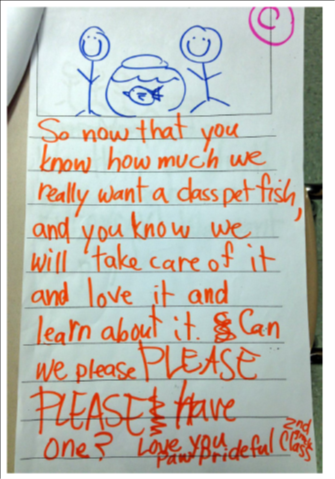 C
So now that you
know how much we
really want a class pet fish,
and you know we
will take care of it
and love it and
learn about it. Can
we please PLEASE
PLEASE Have
one? Love you
Paw Prideful Class
2nd